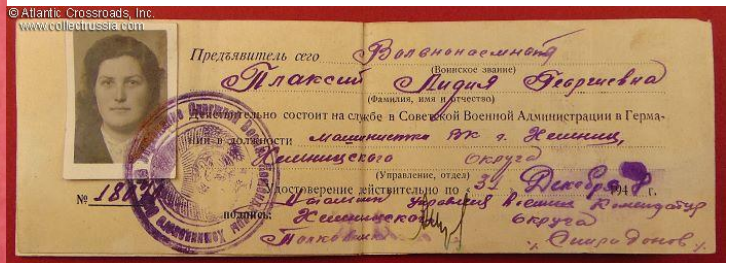 © Atlantic Crossroads, Inc.
www.collectrussia.com
Предъявитель сего Вольнонаемная
(Воинское звание)
Плаксий Лидия Георгиевна
(Фамилия, имя и отчество)
Действительно состоит на службе в Советской Военной Администрации в Герма-
нии в должности машинистка ВК г. Хемниц,
Хемницкого Округа
(Управление, отдел)
№ Удостоверение действительно по «31» Декабря 1948 г.
Начальник управления Военных Комендатур
подпись: Хемницкого Округа
Полковник /Спиридонов/